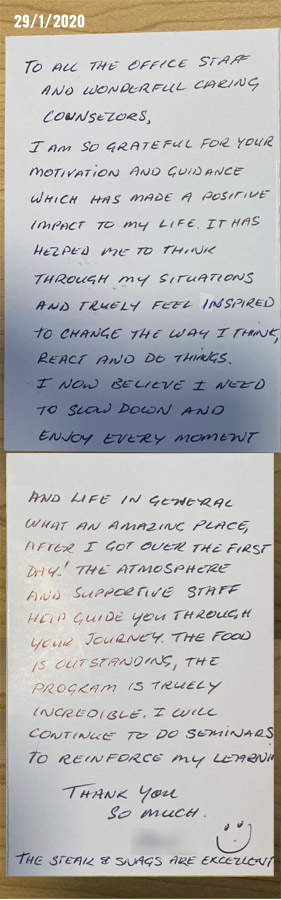 29/1/2020
TO ALL THE OFFICE STAFF
AND WONDERFUL CARING
COUNSELORS,
I AM SO GRATEFUL FOR YOUR
MOTIVATION AND GUIDANCE
WHICH HAS MADE A POSITIVE
IMPACT TO MY LIFE. IT HAS
HELPED ME TO THINK
THROUGH MY SITUATIONS
AND TRUELY FEEL INSPIRED
TO CHANGE THE WAY I THINK,
REACT AND DO THINGS.
I NOW BELIEVE I NEED
TO SLOW DOWN AND
ENJOY EVERY MOMENT
AND LIFE IN GENERAL
WHAT AN AMAZING PLACE,
AFTER I GOT OVER THE FIRST
DAY! THE ATMOSPHERE
AND SUPPORTIVE STAFF
HELP GUIDE YOU THROUGH
YOUR JOURNEY. THE FOOD
IS OUTSTANDING, THE
PROGRAM IS TRUELY
INCREDIBLE. I WILL
CONTINUE TO DO SEMINARS
TO REINFORCE MY LEARNIN
THANK YOU
SO MUCH.
THE STEAK & SNAGS ARE EXCELLENT